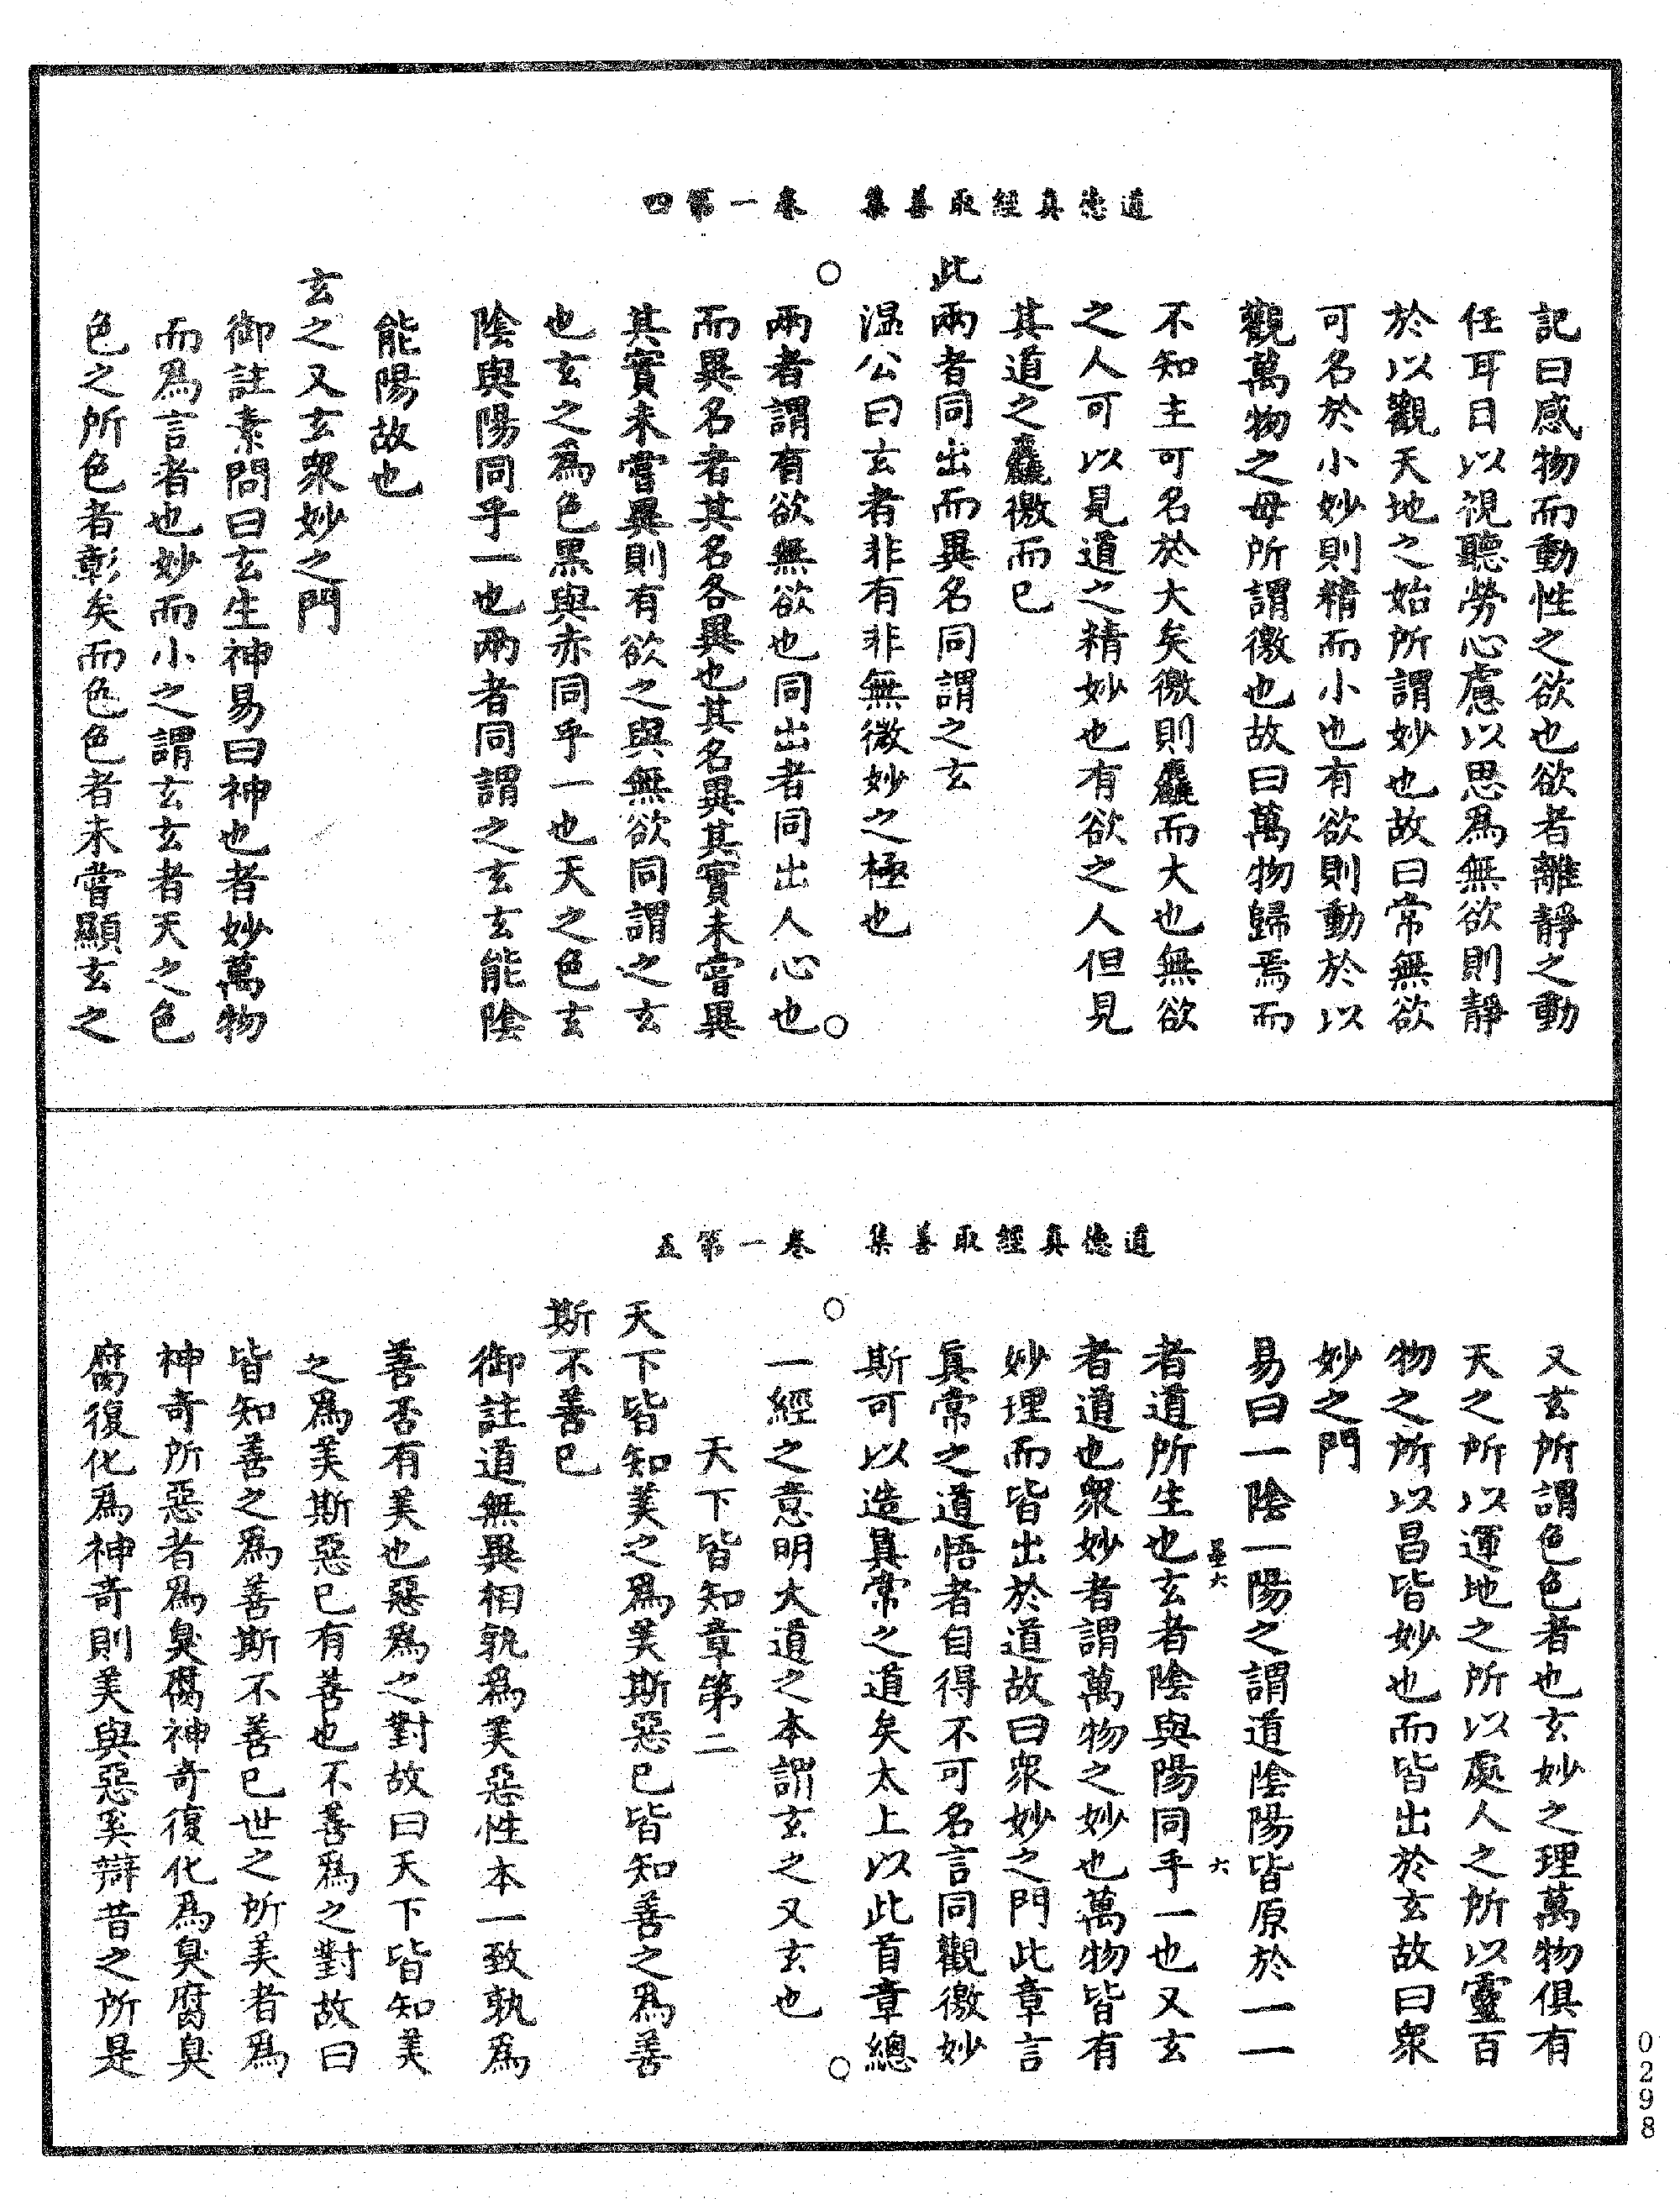 道德真經取善集 卷一第四
記曰感物而動性之欲也欲者離靜之動
任耳目以視聽勞心慮以思為無欲則靜
於以觀天地之始所謂妙也故曰常無欲
可名於小妙則精而小也有欲則動於以
觀萬物之母所謂徼也故曰萬物歸焉而
不知主可名於大矣徼則麤而大也無欲
之人可以見道之精妙也有欲之人但見
其道之麤徼而已
此兩者同出而異名同謂之玄
溫公曰玄者非有非無微妙之極也
兩者謂有欲無欲也同出者同出人心也
而異名者其名各異也其名異其實未嘗異
其實未嘗異則有欲之與無欲同謂之玄
也玄之為色黑與赤同乎一也天之色玄
陰與陽同乎一也兩者同謂之玄玄能陰
能陽故也
玄之又玄眾妙之門
御註素問曰玄生神易曰神也者妙萬物
而為言者也妙而小之謂玄玄者天之色
色之所色者彰矣而色色者未嘗顯玄之
道德真經取善集 卷一第五
又玄所謂色色者也玄妙之理萬物俱有
天之所以運地之所以處人之所以靈百
物之所以昌皆妙也而皆出於玄故曰眾
妙之門
易曰一陰一陽之謂道陰陽皆原於一一
六
六
者道所生也玄者陰與陽同乎一也又玄
者道也眾妙者謂萬物之妙也萬物皆有
妙理而皆出於道故曰眾妙之門此章言
真常之道悟者自得不可名言同觀徼妙
斯可以造真常之道矣太上以此首章總
一經之意明大道之本謂玄之又玄也
天下皆知章第二
天下皆知美之為美斯惡已皆知善之為善
斯不善已
御註道無異相孰為美惡性本一致孰為
善否有美也惡為之對故曰天下皆知美
之為美斯惡已有善也不善為之對故曰
皆知善之為善斯不善已世之所美者為
神奇所惡者為臭腐神奇復化為臭腐臭
腐復化為神奇則美與惡奚辯昔之所是
0298